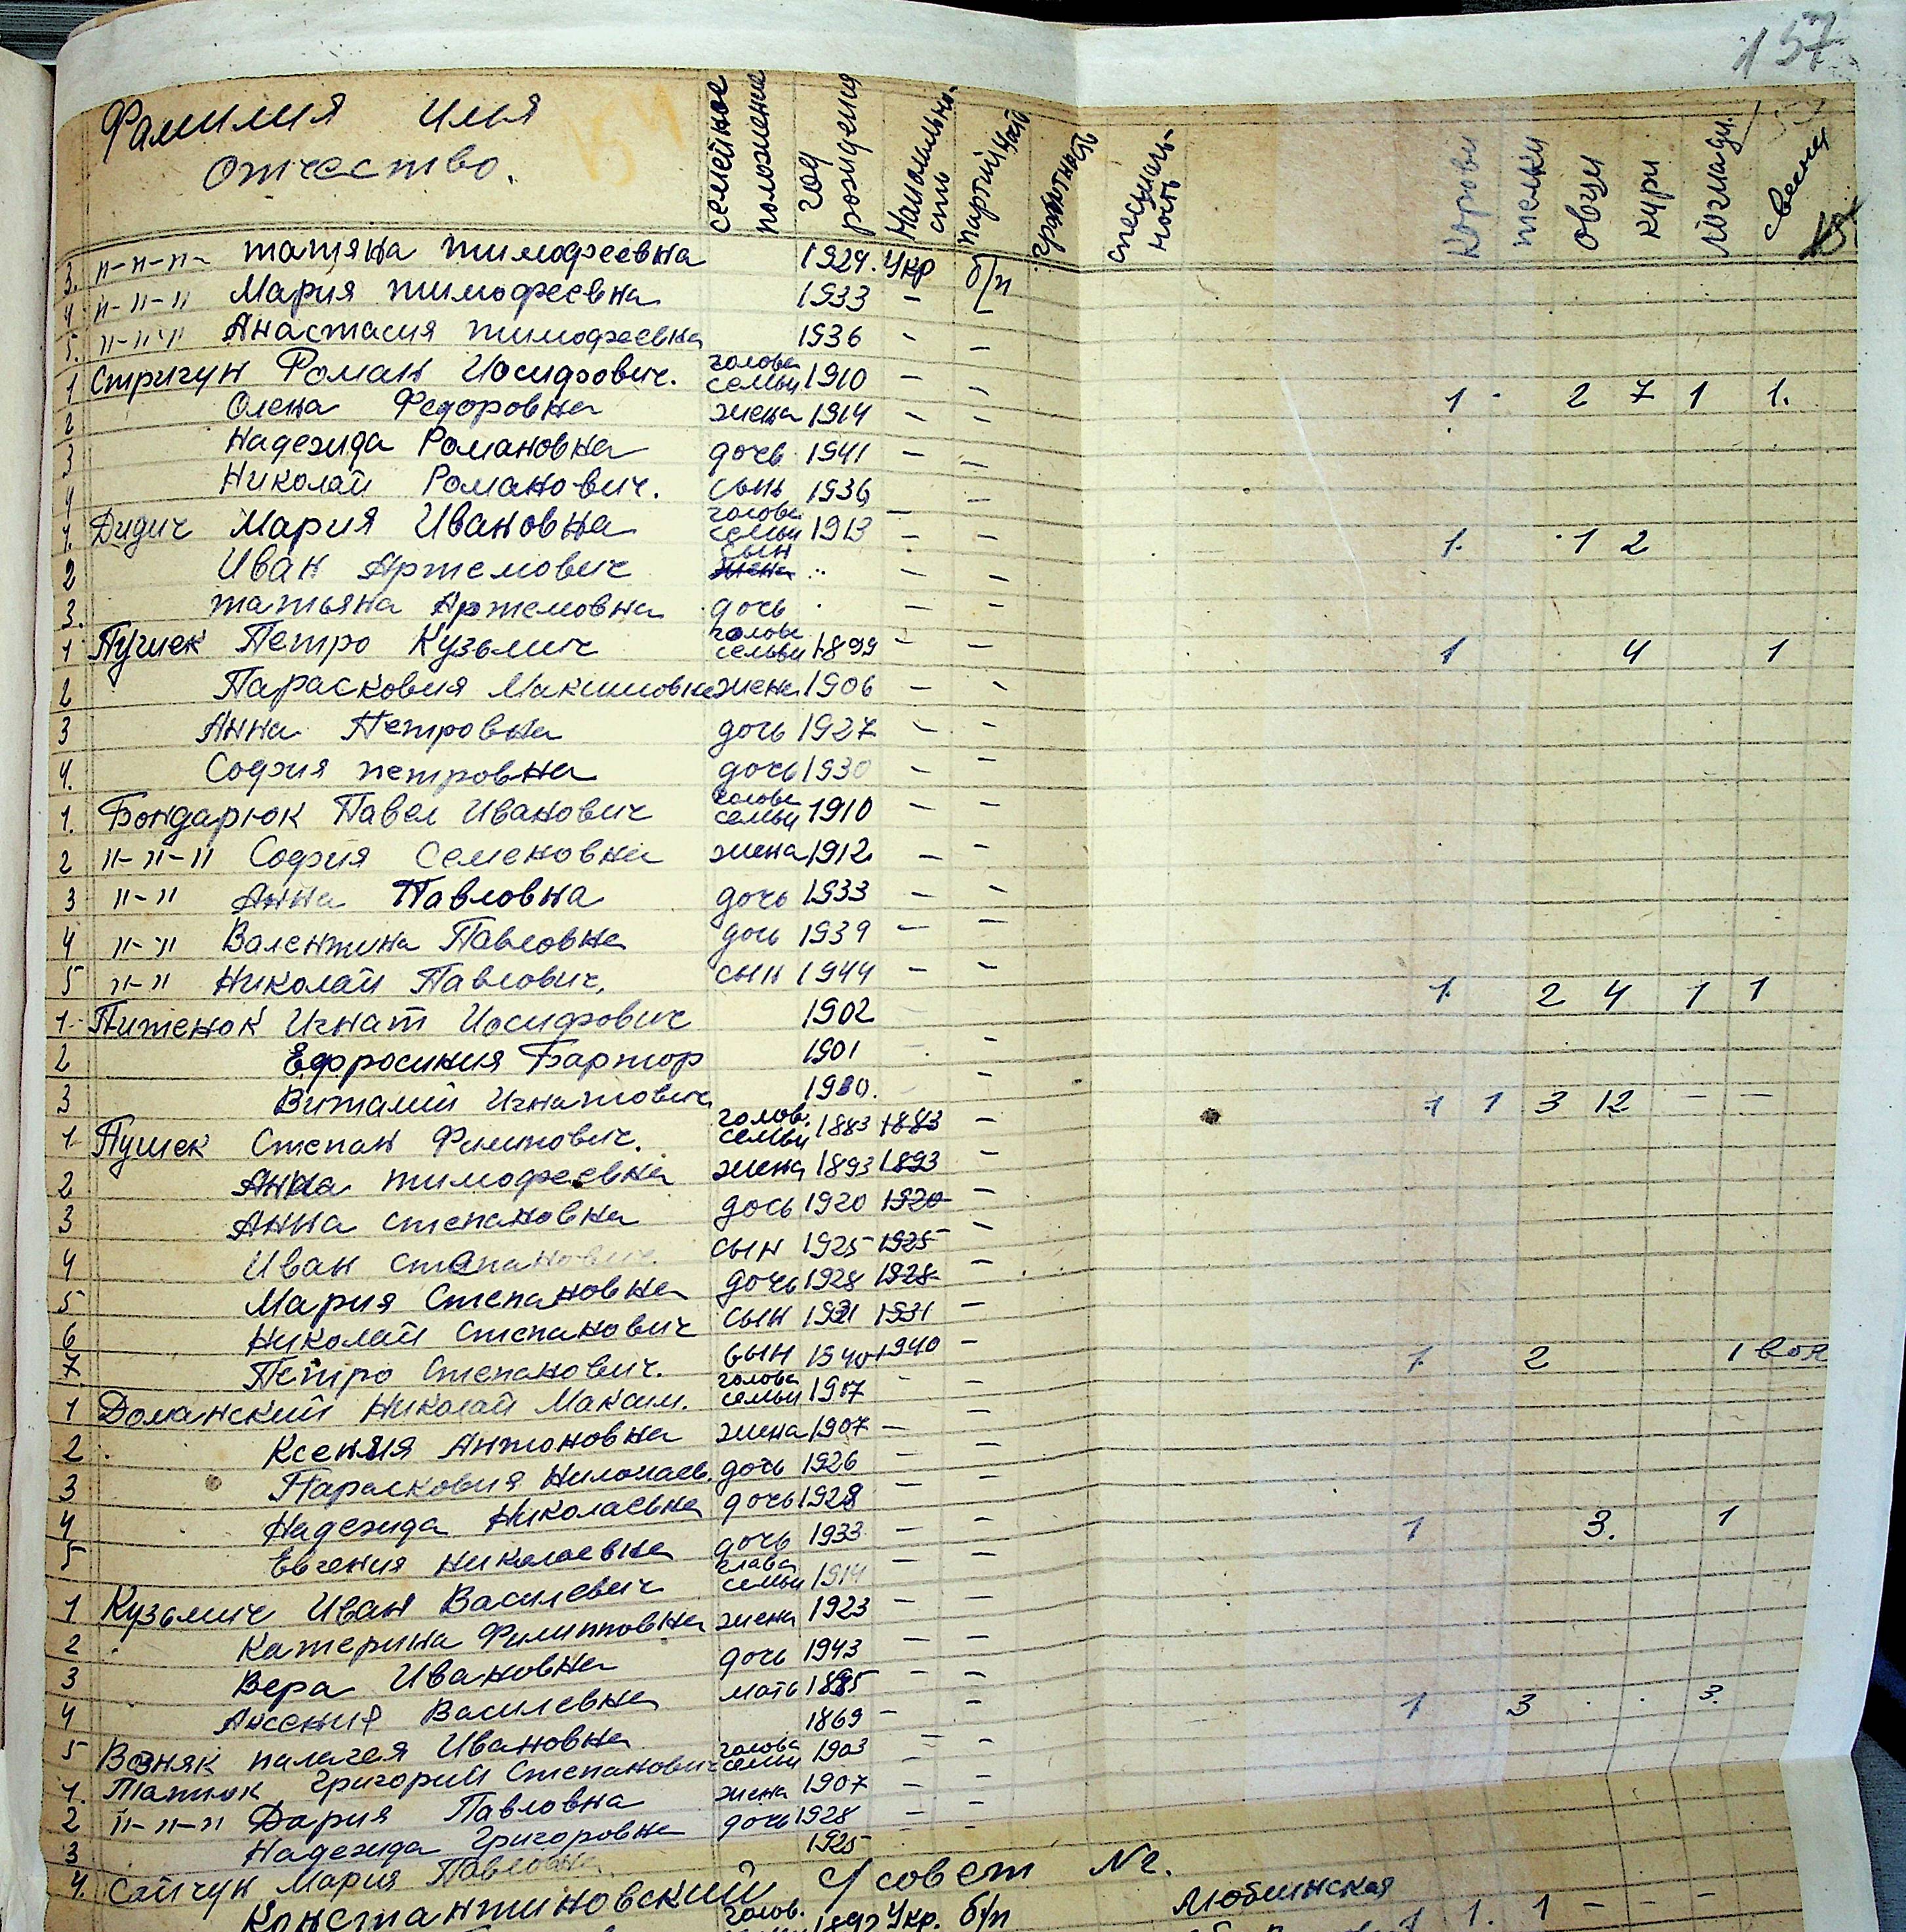 157
Фамилия имя отчество. семейное положение год рождения Национальность партийность специальность Корови телки овци кури лошади
3. "-"-"- татяна тимофеевна 1929. Укр б/п
4 "-"-" Мария тимофеевна 1933 -
5. "-"-" Анастасия тимофеевна 1936 - -
1 Стригун Роман Иосифович. голова семьи 1910 - - 1 2 7 1 1.
2 Олена Федоровна жена 1914 - -
3 Надежида Романовна дочь 1941 - -
4 Николай Романович. сынь 1936 - -
1. Дидич Мария Ивановна голова семьи 1913 - - 1. 1 2
2 Иван Артемович сын - -
3. татьяна Артемовна дочь - -
1 Пушек Петро Кузьмич голова семьи 1899 - - 1 4 1
2 Парасковия Максимовна жена 1906 - -
3 Анна Петровна дочь 1927 - -
4. София петровна дочь 1930 - -
1. Бондарюк Павел Иванович голова семьи 1910 - -
2 "-"-" София Семеновна жена 1912 - -
3 "-" Анна Павловна дочь 1933 - -
4 "-" Валентина Павловна дочь 1939 - -
5 "-" Николай Павлович. сын 1944 - - 1. 2 4 1 1
1. Питенок Игнат Иосифович 1902
2 Ефросиния Бартор 1901 -
3 Виталий Игнатович 1930. - 1 1 3 12 - -
1 Пушек Степан Филипович. голов. семьи 1883 1883 -
2 Анна тимофеевна жена 1893 1893 -
3 Анна степановна дось 1920 1920 -
4 Иван степанович. сын 1925 1925 -
5 Мария Степановна дочь 1928 1928 -
6 Николай Степанович сын 1931 1931 -
7 Петро Степанович. сын 1940 1940 - 1. 2 1 воя
1 Доманский Николай Максим. голова семьи 1907 - -
2 Ксения Антоновна жена 1907 - -
3 Парасковия Николаев. дочь 1926 - -
4 Надежида Николаевна дочь 1928 - - 1 3. 1
5 Евгения николаевна дочь 1933 - -
1 Кузьмич Иван Василевич глава семьи 1914 - -
2 Катерина Филипповна жена 1923 - -
3 Вера Ивановна дочь 1943 - -
4 Аксения Василевна мать 1885 - - 1 3 3.
5 Возняк палагея Ивановна 1869 - -
1. Татюк Григорий Степанович голова семьи 1903 - -
2 "-"-" Дария Павловна жена 1907 - -
3 Надежида Григоровна дочь 1928 - -
4. Сайчук Мария Павловна 1925
Константиновский с/совет №2.
голов. 1892 Укр. б/п Люблинская 1 1. 1 - - -